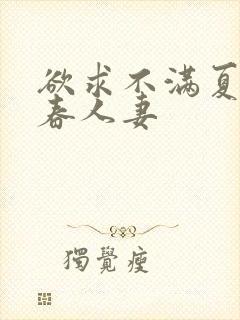 欲求不滿夏
春人妻
獨覺瘦